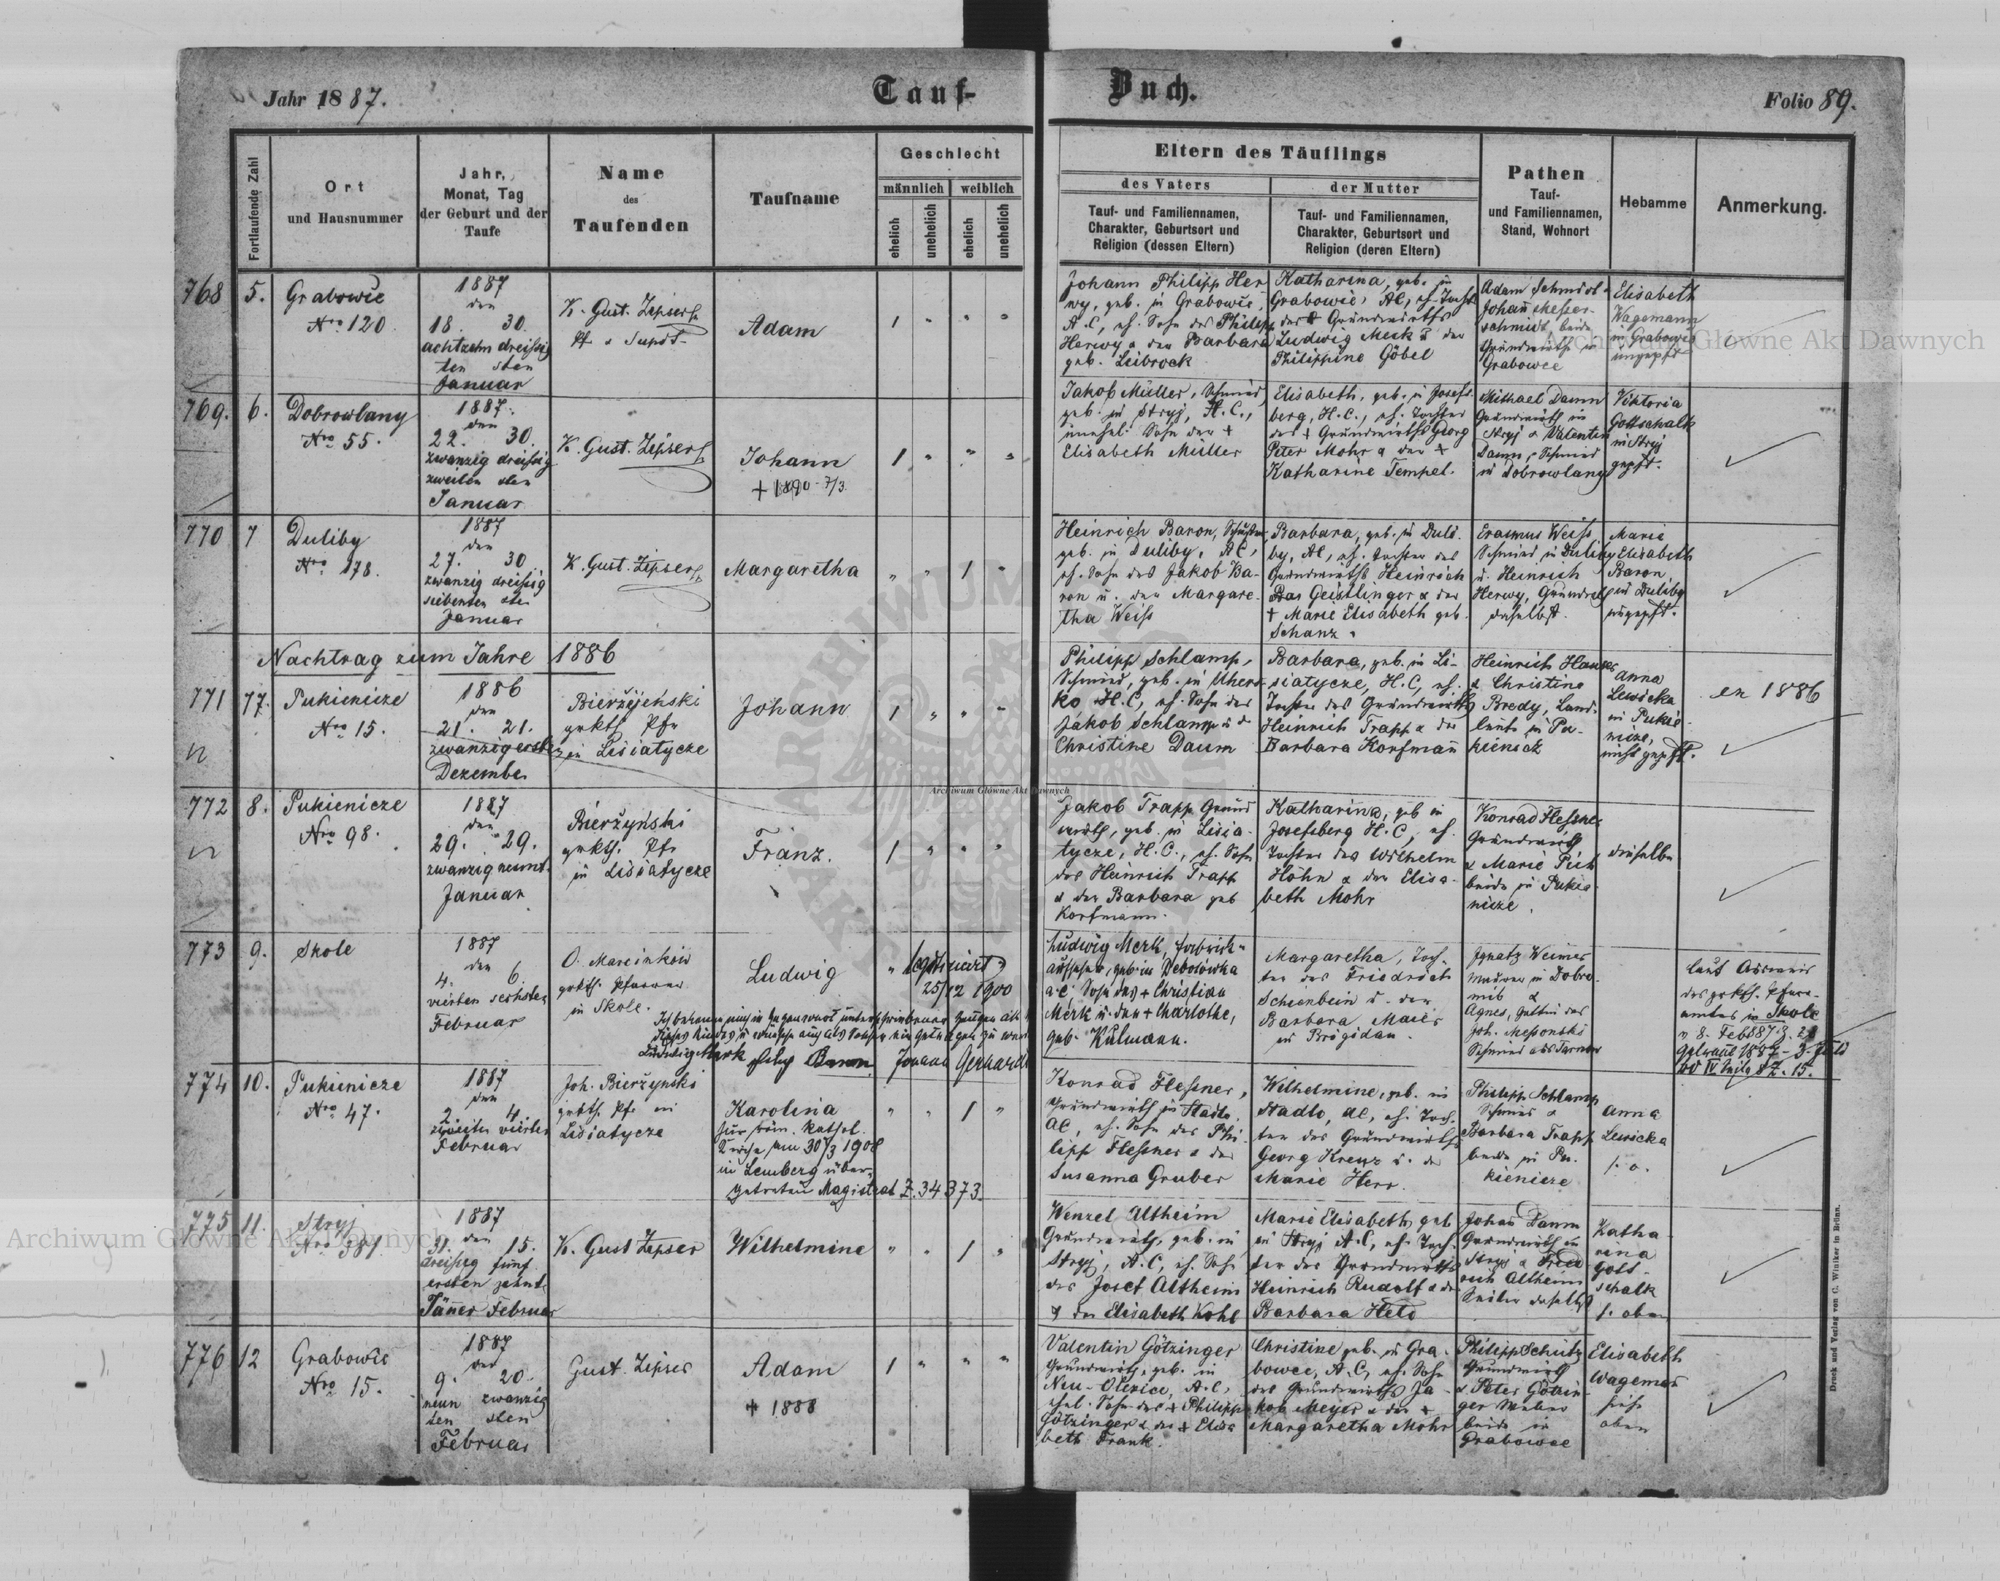 Jahr 1887.
Tauf-
Buch.
Folio 89.
Fortlaufende Zahl
Ort
und Hausnummer
Jahr,
Monat, Tag
der Geburt und der
Taufe
Name
des
Taufenden
Taufname
Geschlecht
männlich
weiblich
ehelich
unehelich
ehelich
unehelich
Eltern des Täuflings
des Vaters
Tauf- und Familiennamen,
Charakter, Geburtsort und
Religion (dessen Eltern)
der Mutter
Tauf- und Familiennamen,
Charakter, Geburtsort und
Religion (deren Eltern)
Pathen
Tauf-
und Familiennamen,
Stand, Wohnort
Hebamme
Anmerkung.
768
5.
Grabowce
Nro 120
1887
den
18. 30.
achtzehn dreissig
ten sten
Januar
K. Gust. Zipser
Pf. u Supdt.
Adam
1 " " "
Johann Philipp Her
wy, geb. in Grabowce,
A.C, eh. Sohn des Philipp
Herwy u der Barbara
geb. Leibrock
Katharina, geb. in
Grabowce, AC, eh. Tocht.
des Grundwirths
Ludwig Merk u der
Philippine Göbel
Adam Schmidt u
Johann Messer-
schmidt, beide
Grundwirth in
Grabowce
Elisabeth
Wagemann
in Grabowce
ungepft
769.
6.
Dobrowlany
Nro 55.
1887.
den
22. 30.
zwanzig dreissig
zweiten sten
Januar
K. Gust. Zipser
Johann
+ 1890 7/3
1 " " "
Jakob Müller, Schmied,
geb. in Stryj, H.C.,
unehel. Sohn der +
Elisabeth Müller
Elisabeth, geb. in Josefs
berg, H.C., eh. Tochter
des + Grundwirths Georg
Peter Mohr u der +
Katharine Tempel.
Michael Damm
Grundwirth in
Stryj u Valentin
Damm, Schmied
in Dobrowlany
Viktoria
Gottschalk
in Stryj
gepft.
770
7
Duliby
Nro 178.
1887
den
27. 30
zwanzig dreissig
siebenten sten
Januar
K. Gust. Zipser
Margaretha
" " 1 "
Heinrich Baron, Schuster
geb. in Duliby, AC,
eh. Sohn des Jakob Ba-
ron u. der Margare-
tha Weiss
Barbara, geb. in Duli-
by, AC, eh. Tochter des
Grundwirths Heinrich
Geistlinger u der
+ Marie Elisabeth geb.
Schanz.
Erasmus Weiss,
Schmied in Duliby
u. Heinrich
Herwy, Grundw.
daselbst.
Marie
Elisabeth
Baron
in Duliby
ungepft.
Nachtrag zum Jahre 1886
771
77.
Pukienicze
Nro 15.
1886
den
21. 21.
zwanzigersten
Dezember
Bierżyński
gr kth. Pfr
in Lisiatycze
Johann
1 " " "
Philipp Schlamp,
Schmied, geb. in Uhers-
ko H.C, eh. Sohn des
Jakob Schlamp u d
Christine Daum
Barbara, geb. in Li-
siatycze, H.C, eh.
Tochter des Grundwirths
Heinrich Trapp u der
Barbara Korfmañ
Heinrich Hauser
u Christine
Bredy, Land-
leute in Pu-
kienicz
Anna
Lewicka
in Pukie-
nicze,
nicht gepft.
ex 1886
772
8.
Pukienicze
Nro 98.
1887
den
29. 29.
zwanzigneunt.
Januar
Bierżyński
gr kth. Pfr
in Lisiatycze
Franz.
1 " " "
Jakob Trapp Grund
wirth, geb. in Lisia-
tycze, H.C., eh. Sohn
des Heinrich Trapp
u der Barbara geb
Korfmann.
Katharina, geb in
Josefsberg H.C, eh.
Tochter des Wilhelm
Höhn u der Elisa-
beth Mohr
Konrad Flessner
Grundwirth
u Marie
beide in Pukie-
nicze.
dieselbe
773
9.
Skole
1887
den
4. 6.
vierten sechsten
Februar
O. Marcinków
gr kth. Pfarrer
in Skole.
Ludwig
legitimirt
25/12 1900
Ludwig Merk
Johann Gerhardt
Ludwig Merk, Fabrik-
aufseher, geb. in Debolówka
a.c. Sohn des + Christian
Merk u. der + Charlotte,
geb. Külmann.
Margaretha, Toch-
ter des Friedrich
Schienbein u. der
Barbara Maier
in Brigidau.
Ignatz Weimer
Maurer in Dobro-
mil u
Agnes, Gattin des
Joh. Messonski
Schmied aus Tarnow
laut Ausweis
des gr kth. Pfarr-
amtes in Skole
774
10.
Pukienicze
Nro 47.
1887
den
2. 4.
zweiten vierten
Februar
Joh. Bierżynski
gr kth. Pfr in
Lisiatycze
Karolina
zur röm. kathol.
Kirche am 30/3 1908
in Lemberg über-
getreten Magistrat Z. 34373.
" " 1 "
Konrad Flessner,
Grundwirth in Stadlo,
AC, eh. Sohn des Phi-
lipp Flessner u der
Susanna Gruber
Wilhelmine, geb. in
Stadlo, AC, eh. Toch-
ter des Grundwirths
Georg Kreuz u. der
Marie Herr.
Philipp Schlamp
Schmied u
Barbara Trapp
beide in Pu-
kienicze
Anna
Lewicka
s. o.
775
11.
Stryj
Nro 381
1887
den
31. 15.
dreissig fünf
ersten zehnt.
Jänner Februar
K. Gust Zipser
Wilhelmine
" " 1 "
Wenzel Altheim
Grundwirth, geb. in
Stryj, A.C, eh. Sohn
des Josef Altheim
u der Elisabeth Kohl
Marie Elisabeth geb
in Stryj A.C, eh. Toch-
ter des Grundwirths
Heinrich Rudolf u der
Barbara Held
Johan Damm
Grundwirth in
Stryj u Fried
rich Altheim
Seiler daselbst
Katha-
rina
Gott-
schalk
s. oben
776
12
Grabowce
Nro 15.
1887
den
9. 20.
neun zwanzig
ten sten
Februar
Gust. Zipser
Adam
+ 1888
1 " " "
Valentin Götzinger
Grundwirth, geb. in
Neu-Olexice, A.C,
ehel. Sohn des + Philipp
Götzinger u der + Elisa
beth Frank.
Christine geb. in Gra-
bowce, A.C, eh.
des Grundwirths Ja-
kob Meyer u der +
Margaretha Mohr
Philipp Schütz
Grundwirth
u Peter Götzin-
ger Weber
beide in
Grabowce
Elisabeth
Wageman
siehe
oben
Druck und Verlag von C. Winiker in Brünn.
Archiwum Główne Akt Dawnych
Archiwum Główne Akt Dawnych
Archiwum Główne Akt Dawnych